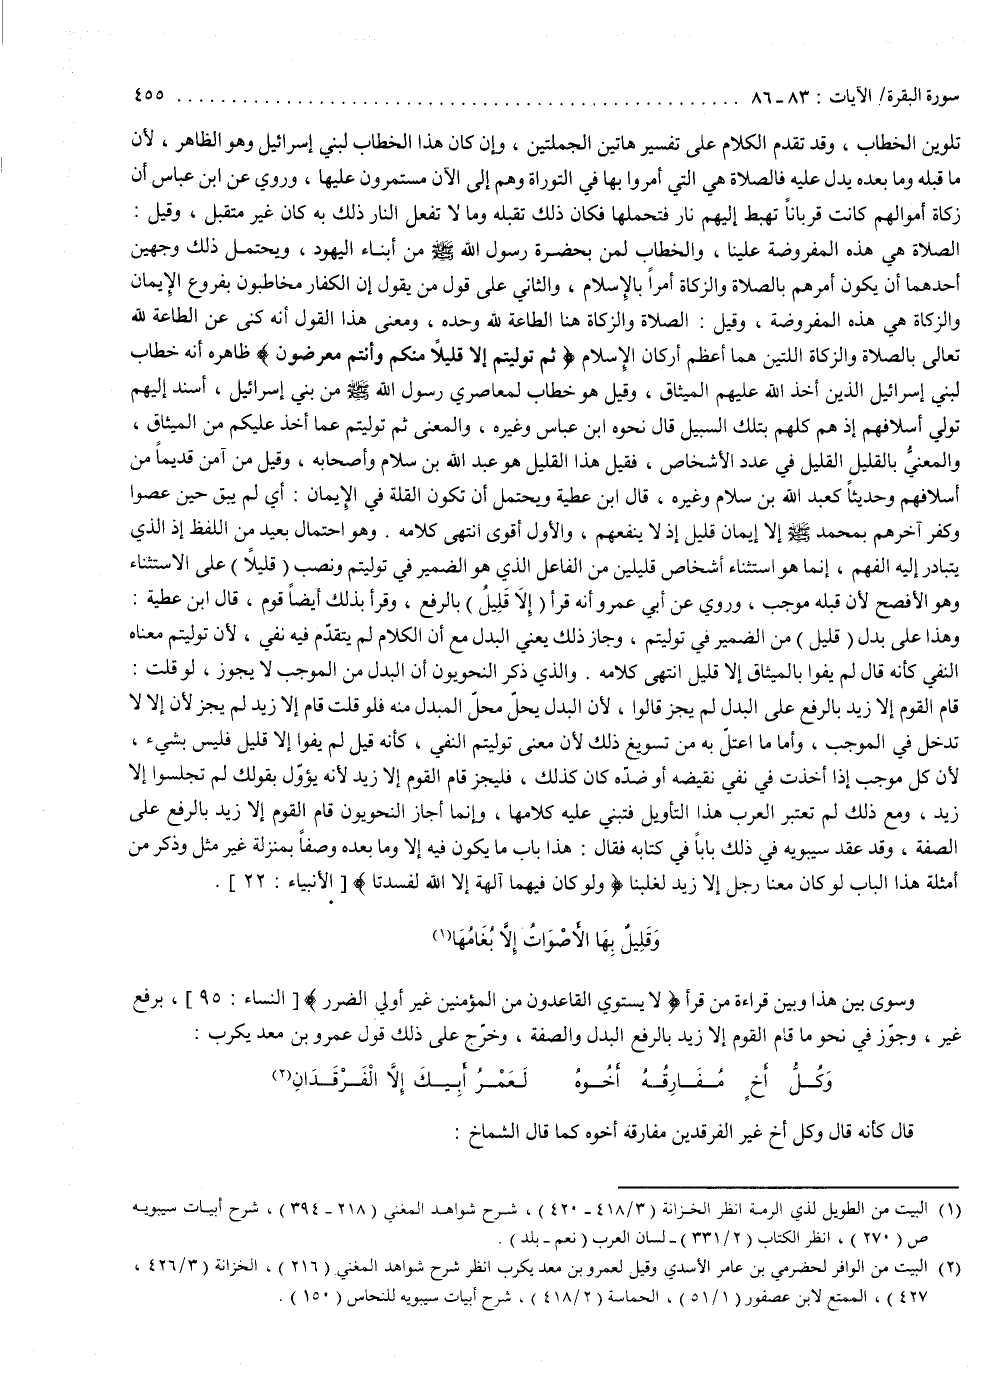 سورة البقرة/ الآيات : ٨٣ـ٨٦ ................................................ ٤٥٥
تلوين الخطاب ، وقد تقدم الكلام على تفسير هاتين الجملتين ، وإن كان هذا الخطاب لبني إسرائيل وهو الظاهر ، لأن
ما قبله وما بعده يدل عليه فالصلاة هي التي أمروا بها في التوراة وهم إلى الآن مستمرون عليها ، وروي عن ابن عباس أن
زكاة أموالهم كانت قرباناً تهبط إليهم نار فتحملها فكان ذلك تقبله وما لا تفعل النار ذلك به كان غير متقبل ، وقيل :
الصلاة هي هذه المفروضة علينا ، والخطاب لمن بحضرة رسول الله ﷺ من أبناء اليهود ، ويحتمل ذلك وجهين
أحدهما أن يكون أمرهم بالصلاة والزكاة أمراً بالإسلام ، والثاني على قول من يقول إن الكفار مخاطبون بفروع الإيمان
والزكاة هي هذه المفروضة ، وقيل : الصلاة والزكاة هنا الطاعة لله وحده ، ومعنى هذا القول أنه كنى عن الطاعة لله
تعالى بالصلاة والزكاة اللتين هما أعظم أركان الإسلام ﴿ ثم توليتم إلا قليلاً منكم وأنتم معرضون ﴾ ظاهره أنه خطاب
لبني إسرائيل الذين أخذ الله عليهم الميثاق ، وقيل هو خطاب لمعاصري رسول الله ﷺ من بني إسرائيل ، أسند إليهم
تولي أسلافهم إذ هم كلهم بتلك السبيل قال نحوه ابن عباس وغيره ، والمعنى ثم توليتم عما أخذ عليكم من الميثاق ،
والمعنيُّ بالقليل القليل في عدد الأشخاص ، فقيل هذا القليل هو عبد الله بن سلام وأصحابه ، وقيل من آمن قديماً من
أسلافهم وحديثاً كعبد الله بن سلام وغيره ، قال ابن عطية ويحتمل أن تكون القلة في الإيمان : أي لم يبق حين عصوا
وكفر آخرهم بمحمد ﷺ إلا إيمان قليل إذ لا ينفعهم ، والأول أقوى انتهى كلامه . وهو احتمال بعيد من اللفظ إذ الذي
يتبادر إليه الفهم ، إنما هو استثناء أشخاص قليلين من الفاعل الذي هو الضمير في توليتم ونصب ( قليلاً ) على الاستثناء
وهو الأفصح لأن قبله موجب ، وروي عن أبي عمرو أنه قرأ ( إلا قَلِيلُ ) بالرفع ، وقرأ بذلك أيضاً قوم ، قال ابن عطية :
وهذا على بدل ( قليل ) من الضمير في توليتم ، وجاز ذلك يعني البدل مع أن الكلام لم يتقدّم فيه نفي ، لأن توليتم معناه
النفي كأنه قال لم يفوا بالميثاق إلا قليل انتهى كلامه . والذي ذكر النحويون أن البدل من الموجب لا يجوز ، لو قلت :
قام القوم إلا زيد بالرفع على البدل لم يجز قالوا ، لأن البدل يحلّ محلّ المبدل منه فلو قلت قام إلا زيد لم يجز لأن إلا لا
تدخل في الموجب ، وأما ما اعتلّ به من تسويغ ذلك لأن معنى توليتم النفي ، كأنه قيل لم يفوا إلا قليل فليس بشيء ،
لأن كل موجب إذا أخذت في نفي نقيضه أو ضدّه كان كذلك ، فليجز قام القوم إلا زيد لأنه يؤوّل بقولك لم تجلسوا إلا
زيد ، ومع ذلك لم تعتبر العرب هذا التأويل فتبني عليه كلامها ، وإنما أجاز النحويون قام القوم إلا زيد بالرفع على
الصفة ، وقد عقد سيبويه في ذلك باباً في كتابه فقال : هذا باب ما يكون فيه إلا وما بعده وصفاً بمنزلة غير مثل وذكر من
أمثلة هذا الباب لو كان معنا رجل إلا زيد لغلبنا ﴿ ولو كان فيهما آلهة إلا الله لفسدتا ﴾ [ الأنبياء : ٢٢ ] .
وَقَلِيلٌ بِهَا الأَصْوَاتُ إِلَّا بُغَامُهَا(١)
وسوى بين هذا وبين قراءة من قرأ ﴿ لا يستوي القاعدون من المؤمنين غير أولي الضرر ﴾ [ النساء : ٩٥ ] ، برفع
غير ، وجوّز في نحو ما قام القوم إلا زيد بالرفع البدل والصفة ، وخرّج على ذلك قول عمرو بن معد يكرب :
وَكُلُّ أَخٍ مُفَارِقُهُ أَخُوهُ لَعَمْرُ أَبِيكَ إِلَّا الْفَرْقَدَانِ(٢)
قال كأنه قال وكل أخ غير الفرقدين مفارقه أخوه كما قال الشماخ :
(١) البيت من الطويل لذي الرمة انظر الخزانة ( ٤١٨/٣ ـ ٤٢٠ ) ، شرح شواهد المغني ( ٢١٨ ـ ٣٩٤ ) ، شرح أبيات سيبويه
ص ( ٢٧٠ ) ، انظر الكتاب ( ٣٣١/٢ ) ـ لسان العرب ( نعم ـ بلد ) .
(٢) البيت من الوافر لحضرمي بن عامر الأسدي وقيل لعمرو بن معد يكرب انظر شرح شواهد المغني ( ٢١٦ ) ، الخزانة ( ٤٢٦/٣ ،
٤٢٧ ) ، الممتع لابن عصفور ( ٥١/١ ) ، الحماسة ( ٤١٨/٢ ) ، شرح أبيات سيبويه للنحاس ( ١٥٠ ) .